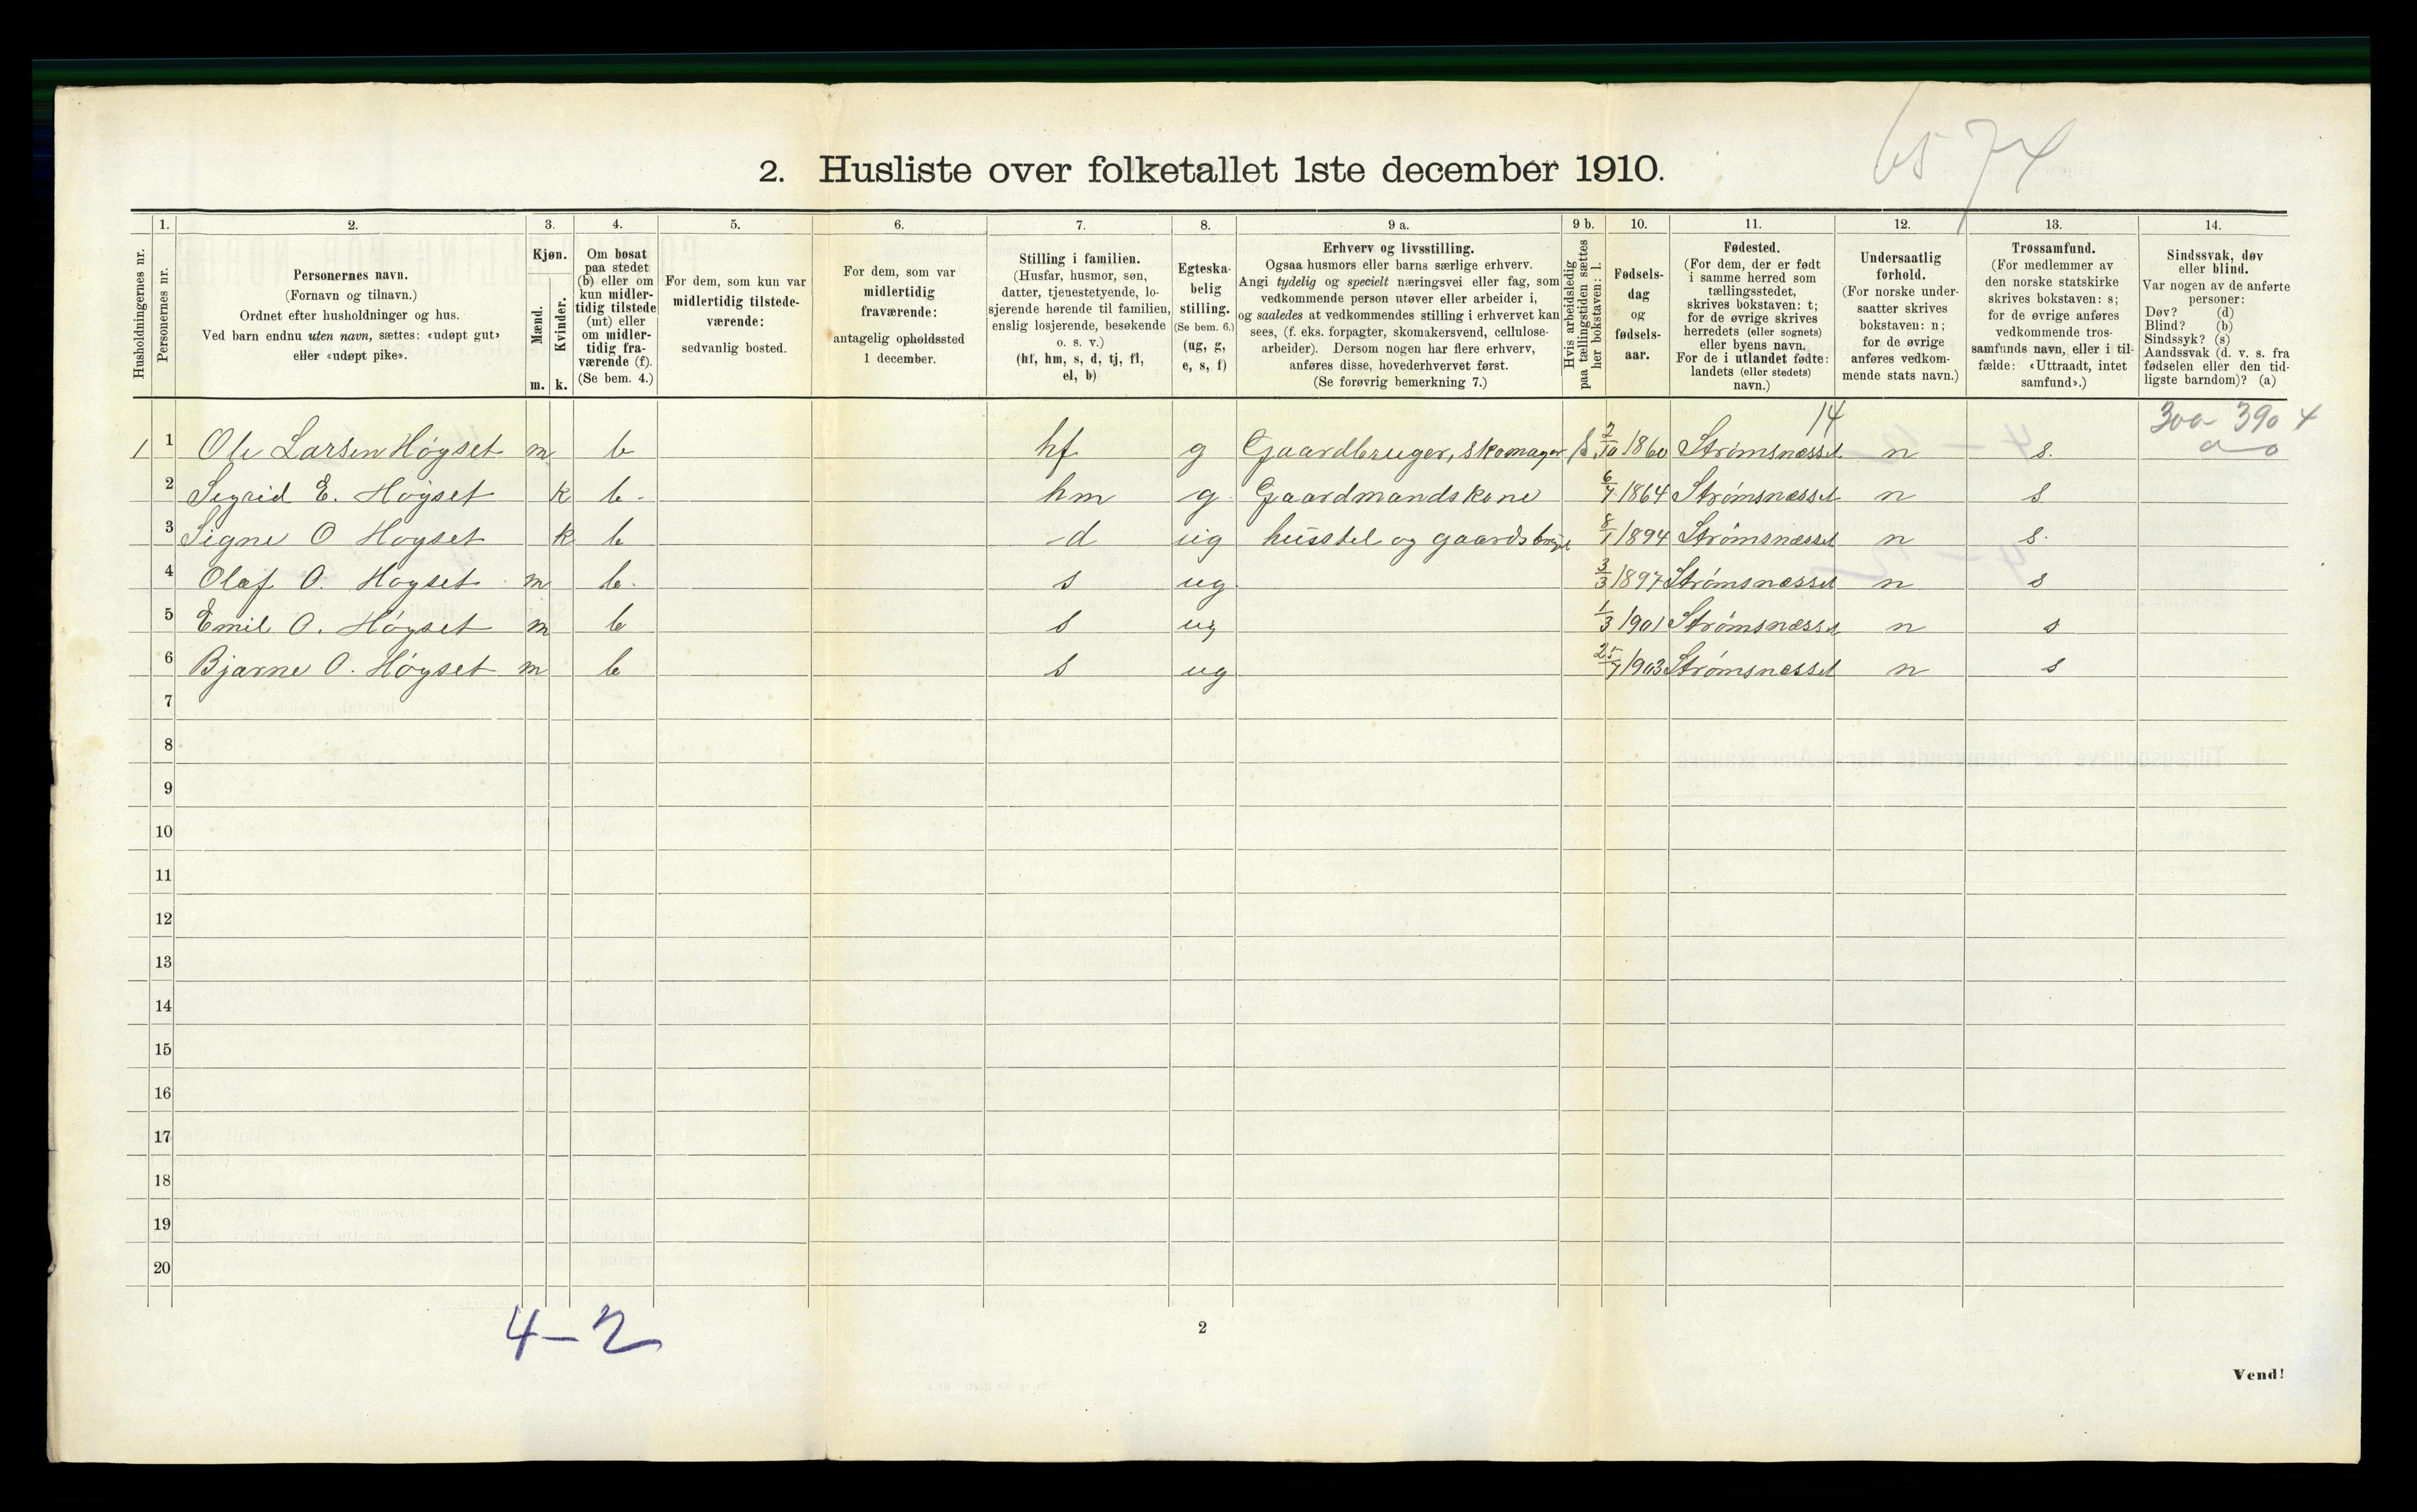 65 74
2. Husliste over folketallet 1ste december 1910.
1. 2. 3. 4. 5. 6. 7. 8. 9 a. 9 b. 10. 11. 12. 13. 14.
Husholdningernes nr.
Personernes nr.
Personernes navn.
(Fornavn og tilnavn.)
Ordnet efter husholdninger og hus.
Ved barn endnu uten navn, sættes: «udøpt gut»
eller «udøpt pike».
Kjøn.
Mænd.
Kvinder.
m. k.
Om bosat
paa stedet
(b) eller om
kun midler-
tidig tilstede
(mt) eller
om midler-
tidig fra-
værende (f).
(Se bem. 4.)
For dem, som kun var
midlertidig tilstede-
værende:
sedvanlig bosted.
For dem, som var
midlertidig
fraværende:
antagelig opholdssted
1 december.
Stilling i familien.
(Husfar, husmor, søn,
datter, tjenestetyende, lo-
sjerende hørende til familien,
enslig losjerende, besøkende
o. s. v.)
(hf, hm, s, d, tj, fl,
el, b)
Egteska-
belig
stilling.
(Se bem. 6.)
(ug, g,
e, s, f)
Erhverv og livsstilling.
Ogsaa husmors eller barns særlige erhverv.
Angi tydelig og specielt næringsvei eller fag, som
vedkommende person utøver eller arbeider i,
og saaledes at vedkommendes stilling i erhvervet kan
sees, (f. eks. forpagter, skomakersvend, cellulose-
arbeider). Dersom nogen har flere erhverv,
anføres disse, hovederhvervet først.
(Se forøvrig bemerkning 7.)
Hvis arbeidsledig
paa tællingstiden sættes
her bokstaven: l.
Fødsels-
dag
og
fødsels-
aar.
Fødested.
(For dem, der er født
i samme herred som
tællingsstedet,
skrives bokstaven: t;
for de øvrige skrives
herredets (eller sognets)
eller byens navn.
For de i utlandet fødte:
landets (eller stedets)
navn.)
Undersaatlig
forhold.
(For norske under-
saatter skrives
bokstaven: n;
for de øvrige
anføres vedkom-
mende stats navn.)
Trossamfund.
(For medlemmer av
den norske statskirke
skrives bokstaven: s;
for de øvrige anføres
vedkommende tros-
samfunds navn, eller i til-
fælde: «Uttraadt, intet
samfund».)
Sindssvak, døv
eller blind.
Var nogen av de anførte
personer:
Døv? (d)
Blind? (b)
Sindssyk? (s)
Aandssvak (d. v. s. fra
fødselen eller den tid-
ligste barndom)? (a)
14 300 390 4
1 1 Ole Larsen Høgset m b hf g Gaardbruger, skomager 2/10 1860 Strømsnæsset n s.
2 Sigrid E. Høgset k b. hm g Gaardmandskone 6/7 1864 Strømsnæsset n s
3 Signe O Høgset k b d ug husstel og gaardsbruk 8/1 1894 Strømsnæsset n s.
4 Olaf O. Høgset m b. s ug 3/3 1897 Strømsnæsset n s
5 Emil O. Høgset m b s ug 1/3 1901 Strømsnæsset n s
6 Bjarne O. Høgset m b s ug 25/7 1903 Strømsnæsset n s
7
8
9
10
11
12
13
14
15
16
17
18
19
20
4-2
2
Vend!